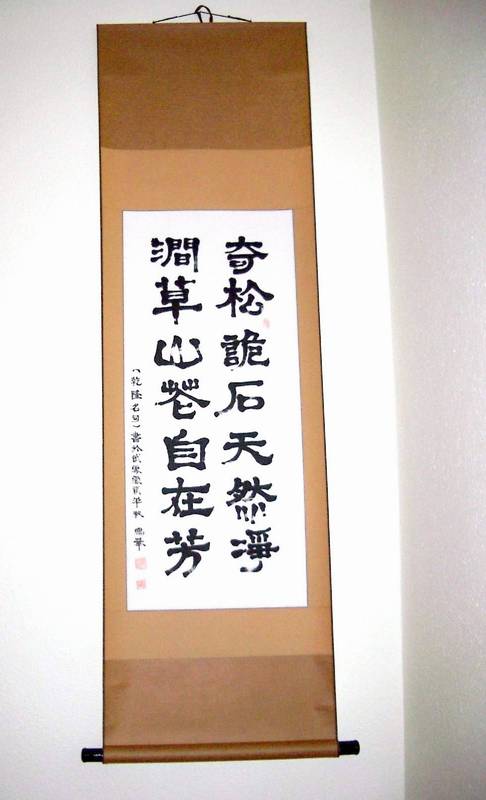 奇松詭石天然淨
澗草山花自在芳
(乾隆名句)書